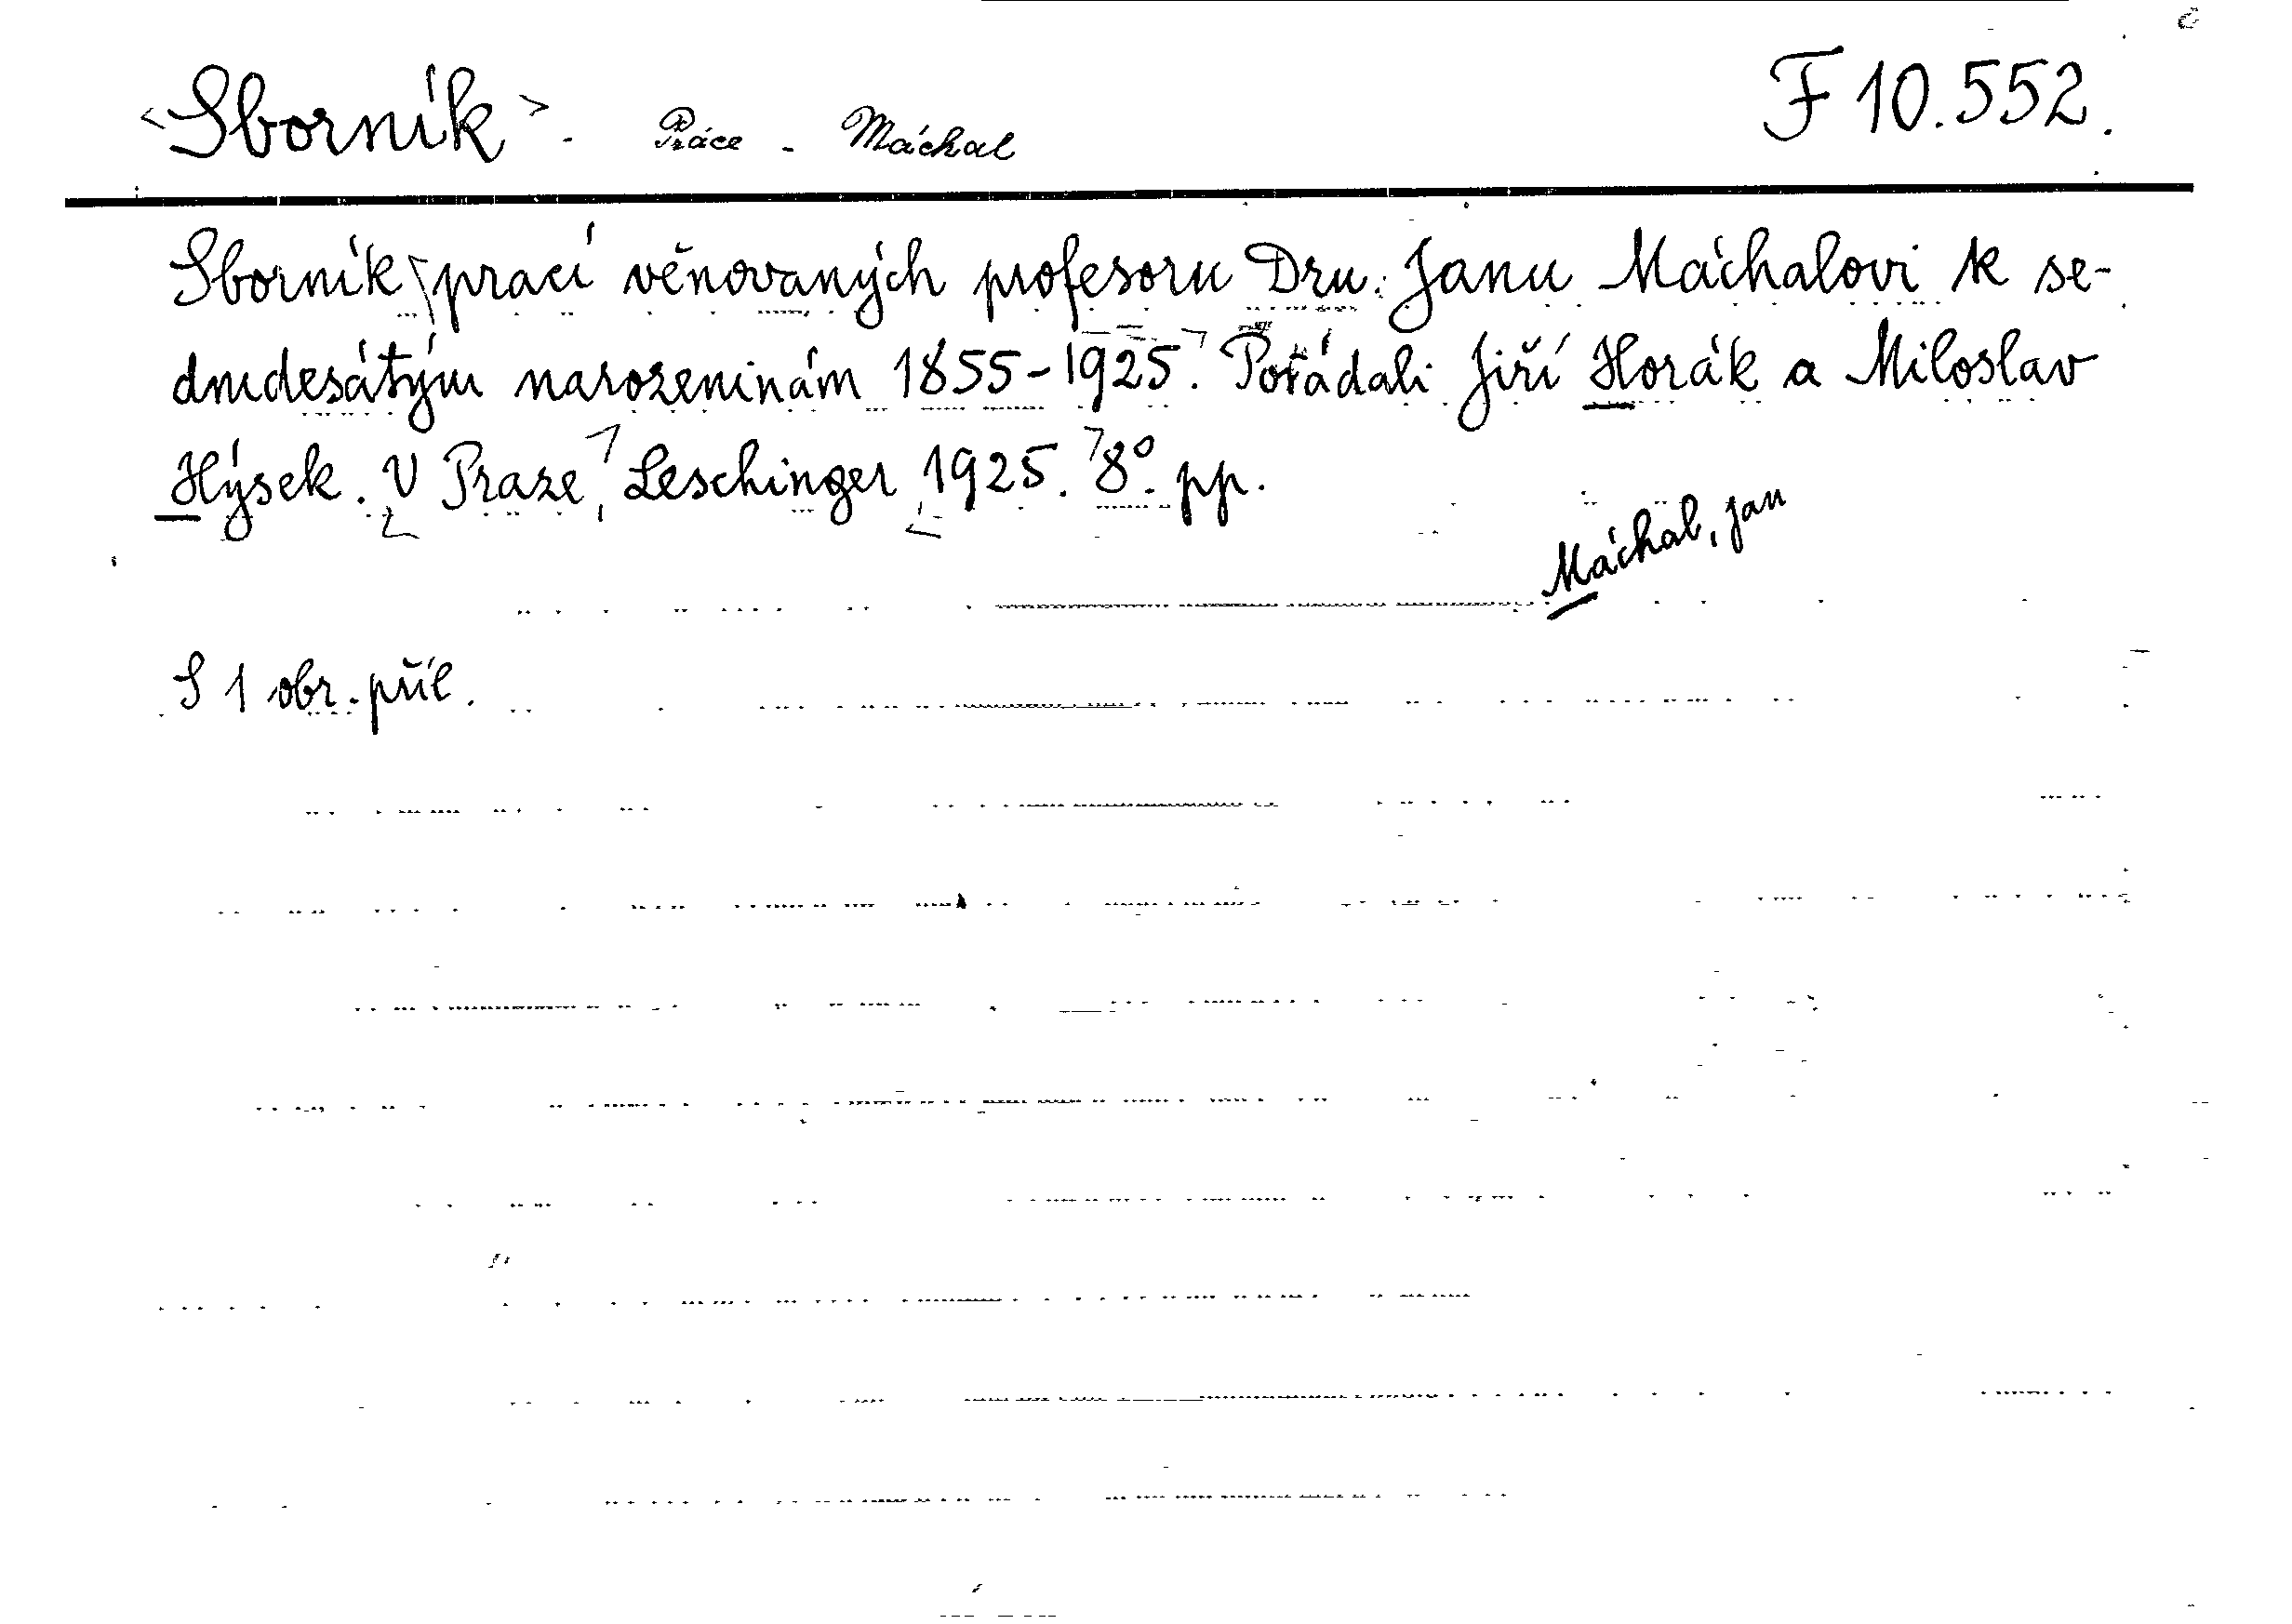 <Sborník>. Práce - Máchal F 10.552.
Sborník prací věnovaných profesoru Dru. Janu Máchalovi k se-
dmdesátým narozeninám 1855-1925. Pořádali Jiří Horák a Miloslav
Hýsek. V Praze, Leschinger 1925. 8°. pp.
Máchal, Jan
S 1 obr. příl.